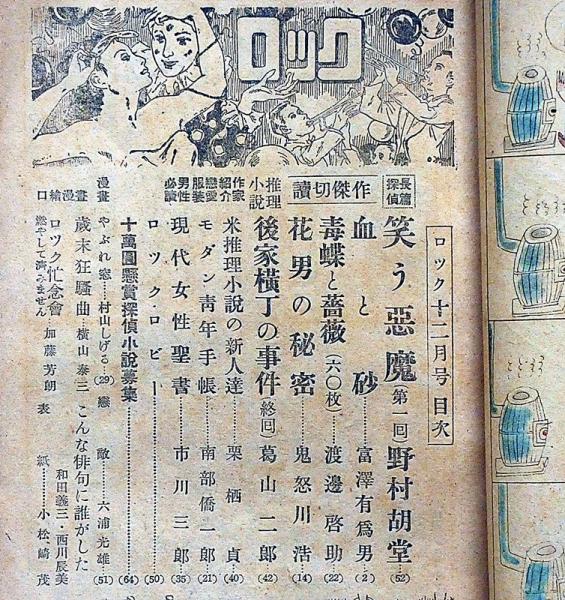 ロック
ロック十二月号目次
長篇探偵 笑う惡魔(第一回) 野村胡堂(52)
傑作讀切
血と砂……富澤有爲男(2)
毒蝶と薔薇(六〇枚)……渡邊啓助(22)
花男の秘密……鬼怒川浩(14)
推理小説 後家横丁の事件(終回) 葛山二郎(42)
作家紹介 米推理小説の新人達……栗栖貞(40)
戀愛服装 モダン靑年手帳……南部僑一郎(21)
男性必讀 現代女性聖書……市川三郎(35)
ロック・ロビー……(50)
十萬圓懸賞探偵小説募集……(64)
漫畫 やぶれ窓……村山しげる(29) 戀敵……六浦光雄(51)
漫畫 歳末狂騷曲・横山泰三 こんな俳句に誰がした 和田義三・西川辰美
口繪 ロック忙念會 燃やして濟みません 加藤芳朗 表紙……小松崎茂